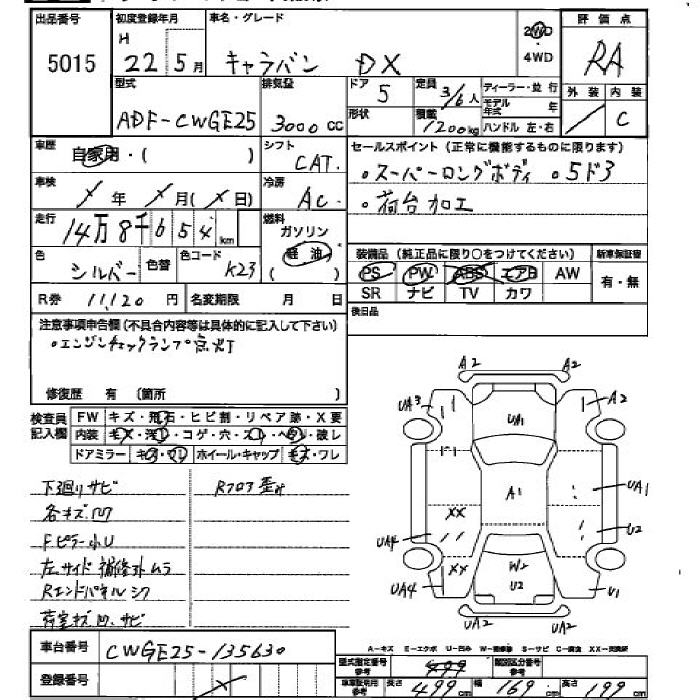 出品番号 初度登録年月 車名・グレード 評価点
5015 H 22年 5月 キャラバン DX 2WD ・ 4WD RA
型式 排気量 ドア 定員 ディーラー・並行 外装 内装
ADF-CWGE25 3000cc 5 3/6人 モデル年式 年
形状 積載 1200kg ハンドル 左・右 C
車歴 自家用・( ) シフト CAT. セールスポイント (正常に機能するものに限ります)
車検 X年 X月(X日) 冷房 AC. 。スーパーロングボディ 。5ド3
走行 14万8千654km 燃料 ガソリン 軽油 ( ) 。荷台加工
色 シルバー 色替 色コード K23 装備品 (純正品に限り○をつけてください) 新車保証書
PS PW ABS エアB AW 有・無
R券 11,120円 名変期限 月 日 SR ナビ TV カワ
注意事項申告欄 (不具合内容等は具体的に記入して下さい) 後日品
。エンジンチェックランプ点灯
修復歴 有 (箇所 )
検査員記入欄 FW キズ・飛石・ヒビ割・リペア跡・X要
内装 キズ・汚レ・コゲ・穴・スレ・ヘタレ・破レ
ドアミラー キズ・ワレ ホイール・キャップ キズ・ワレ
A2 A2
UA3 A2
UA1
A1 UA1
XX U2
UA4 XX W2 U2
UA4 U1
UA2 UA2
下廻りサビ Rフロア歪み
各キズ凹
Fピラー小U
左サイド補修跡ムラ
Rエンドパネルシワ
荷室キズ凹、サビ
A-キズ E-エクボ U-凹み W-補修跡 S-サビ C-腐食 XX-交換済
車台番号 CWGE25-135630
型式指定番号 参考 499 類別区分番号 参考
登録番号 X 車庫証明用 参考 長さ 499cm 幅 169cm 高さ 199cm